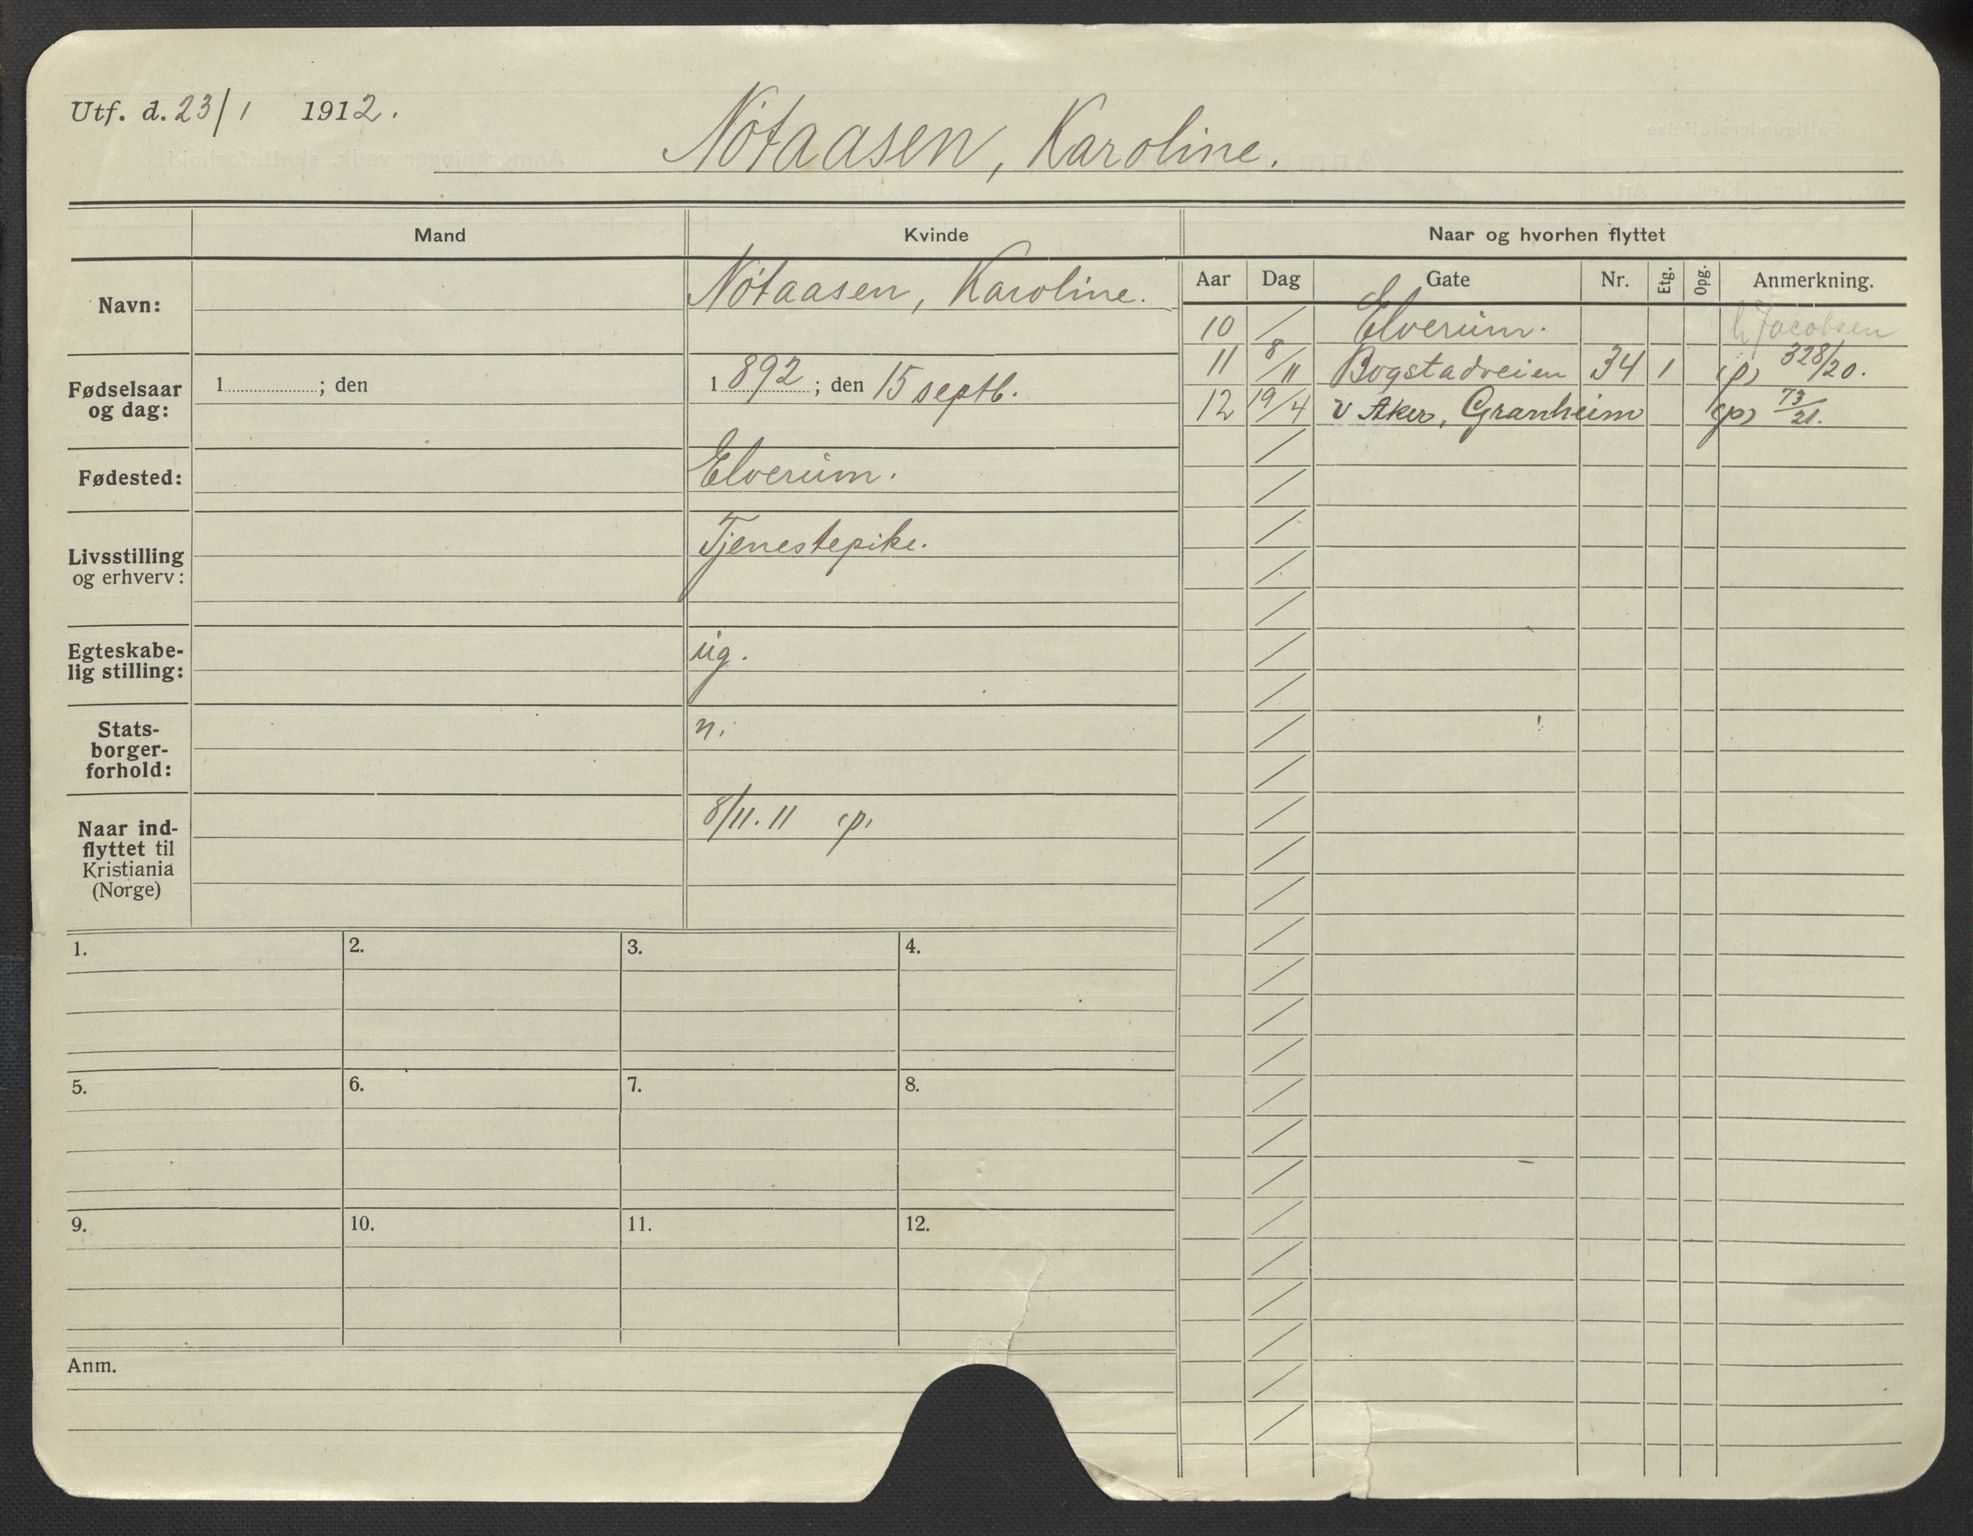 Utf. d. 23/1 1912.
Nötaasen, Karoline.
Mand
Kvinde
Naar og hvorhen flyttet
Navn:
Nötaasen, Karoline.
Fødselsaar og dag:
1 ; den
1892 ; den 15 septb.
Fødested:
Elverum.
Livsstilling og erhverv:
Tjenestepike.
Egteskabe-
lig stilling:
ug.
Stats-
borger-
forhold:
n.
Naar ind-
flyttet til
Kristiania
(Norge)
8/11. 11 (p)
Aar Dag Gate Nr. Etg. Opg. Anmerkning.
10 / Elverum. h Jacobsen
11 8/11 Bogstadveien 34 1 (p) 328/20.
12 19/4 v Aker, Granheim (p) 73/21.
1. 2. 3. 4.
5. 6. 7. 8.
9. 10. 11. 12.
Anm.